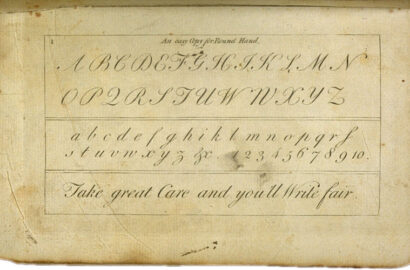 An easy Copy for Round Hand.
A B C D E F G H I K L M N
O P Q R S T U W W X Y Z
a b c d e f g h i k l m n o p q r ſ
s t u v w x y z &c. 1 2 3 4 5 6 7 8 9 10.
Take great Care and you'll Write fair